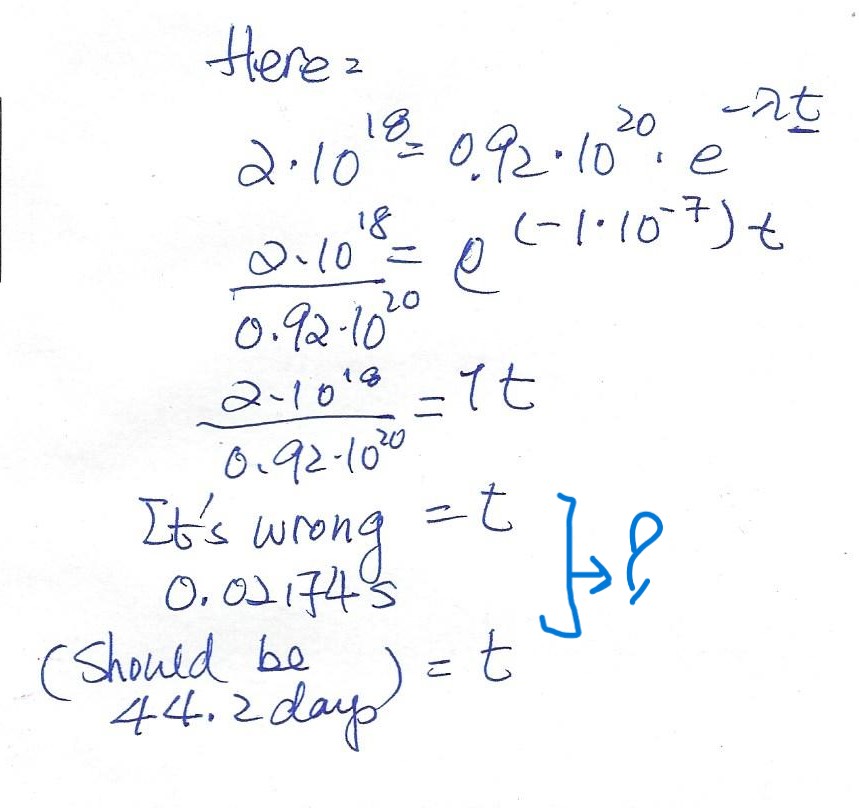 Here =
2·10^18 = 0.92·10^20 · e^-λt
2·10^18 / 0.92·10^20 = e^(-1·10^-7)t
2·10^18 / 0.92·10^20 = 1t
It's wrong = t
0.02174s
(Should be
44.2 days) = t
} → ?